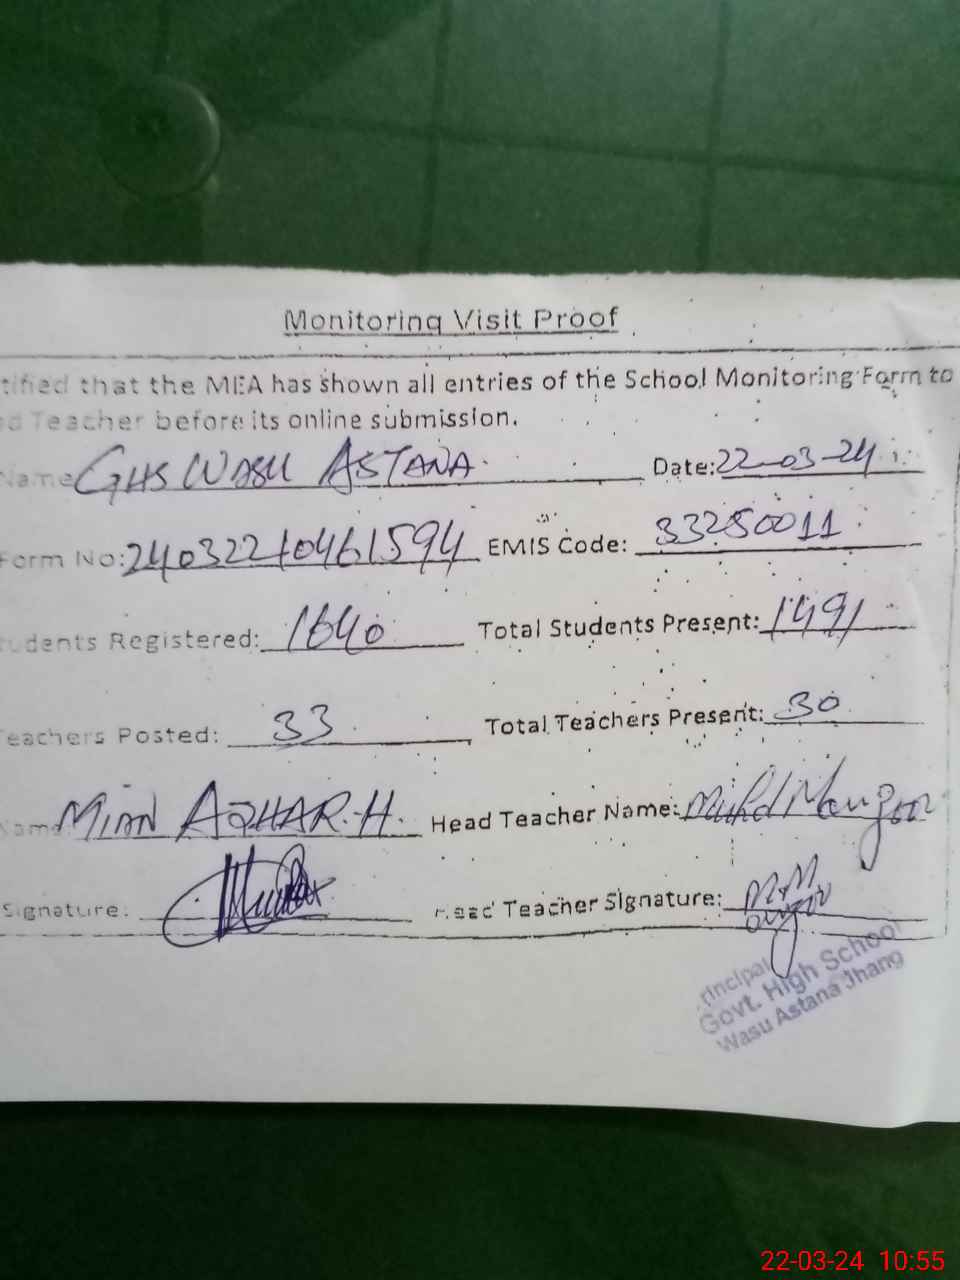 Monitoring Visit Proof
tified that the MEA has shown all entries of the School Monitoring Form to
d Teacher before its online submission.
Name GHS WASU ASTANA Date: 22-03-24
Form No: EMIS Code: 33250011
udents Registered: 1640 Total Students Present: 1491
eachers Posted: 33 Total Teachers Present: 30
Name MIAN AZHAR.H. Head Teacher Name:
Signature: Head Teacher Signature:
rincipal
Govt. High School
Wasu Astana Jhang
22-03-24 10:55